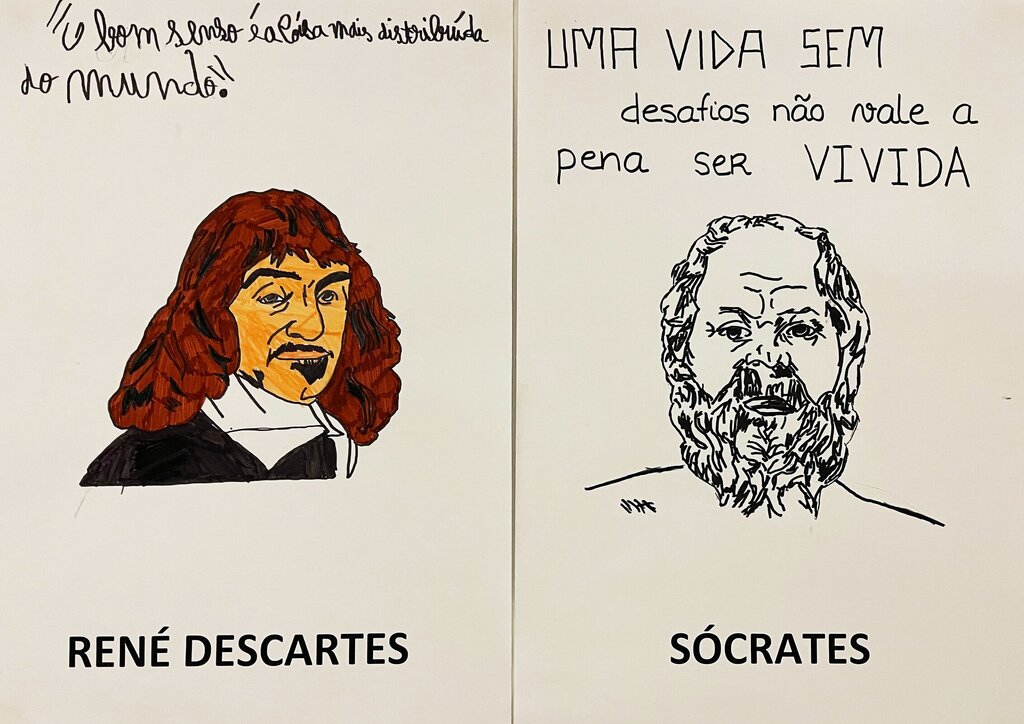 "O bom senso é a coisa mais distribuída
do mundo."
RENÉ DESCARTES
UMA VIDA SEM
desafios não vale a
pena ser VIVIDA
SÓCRATES